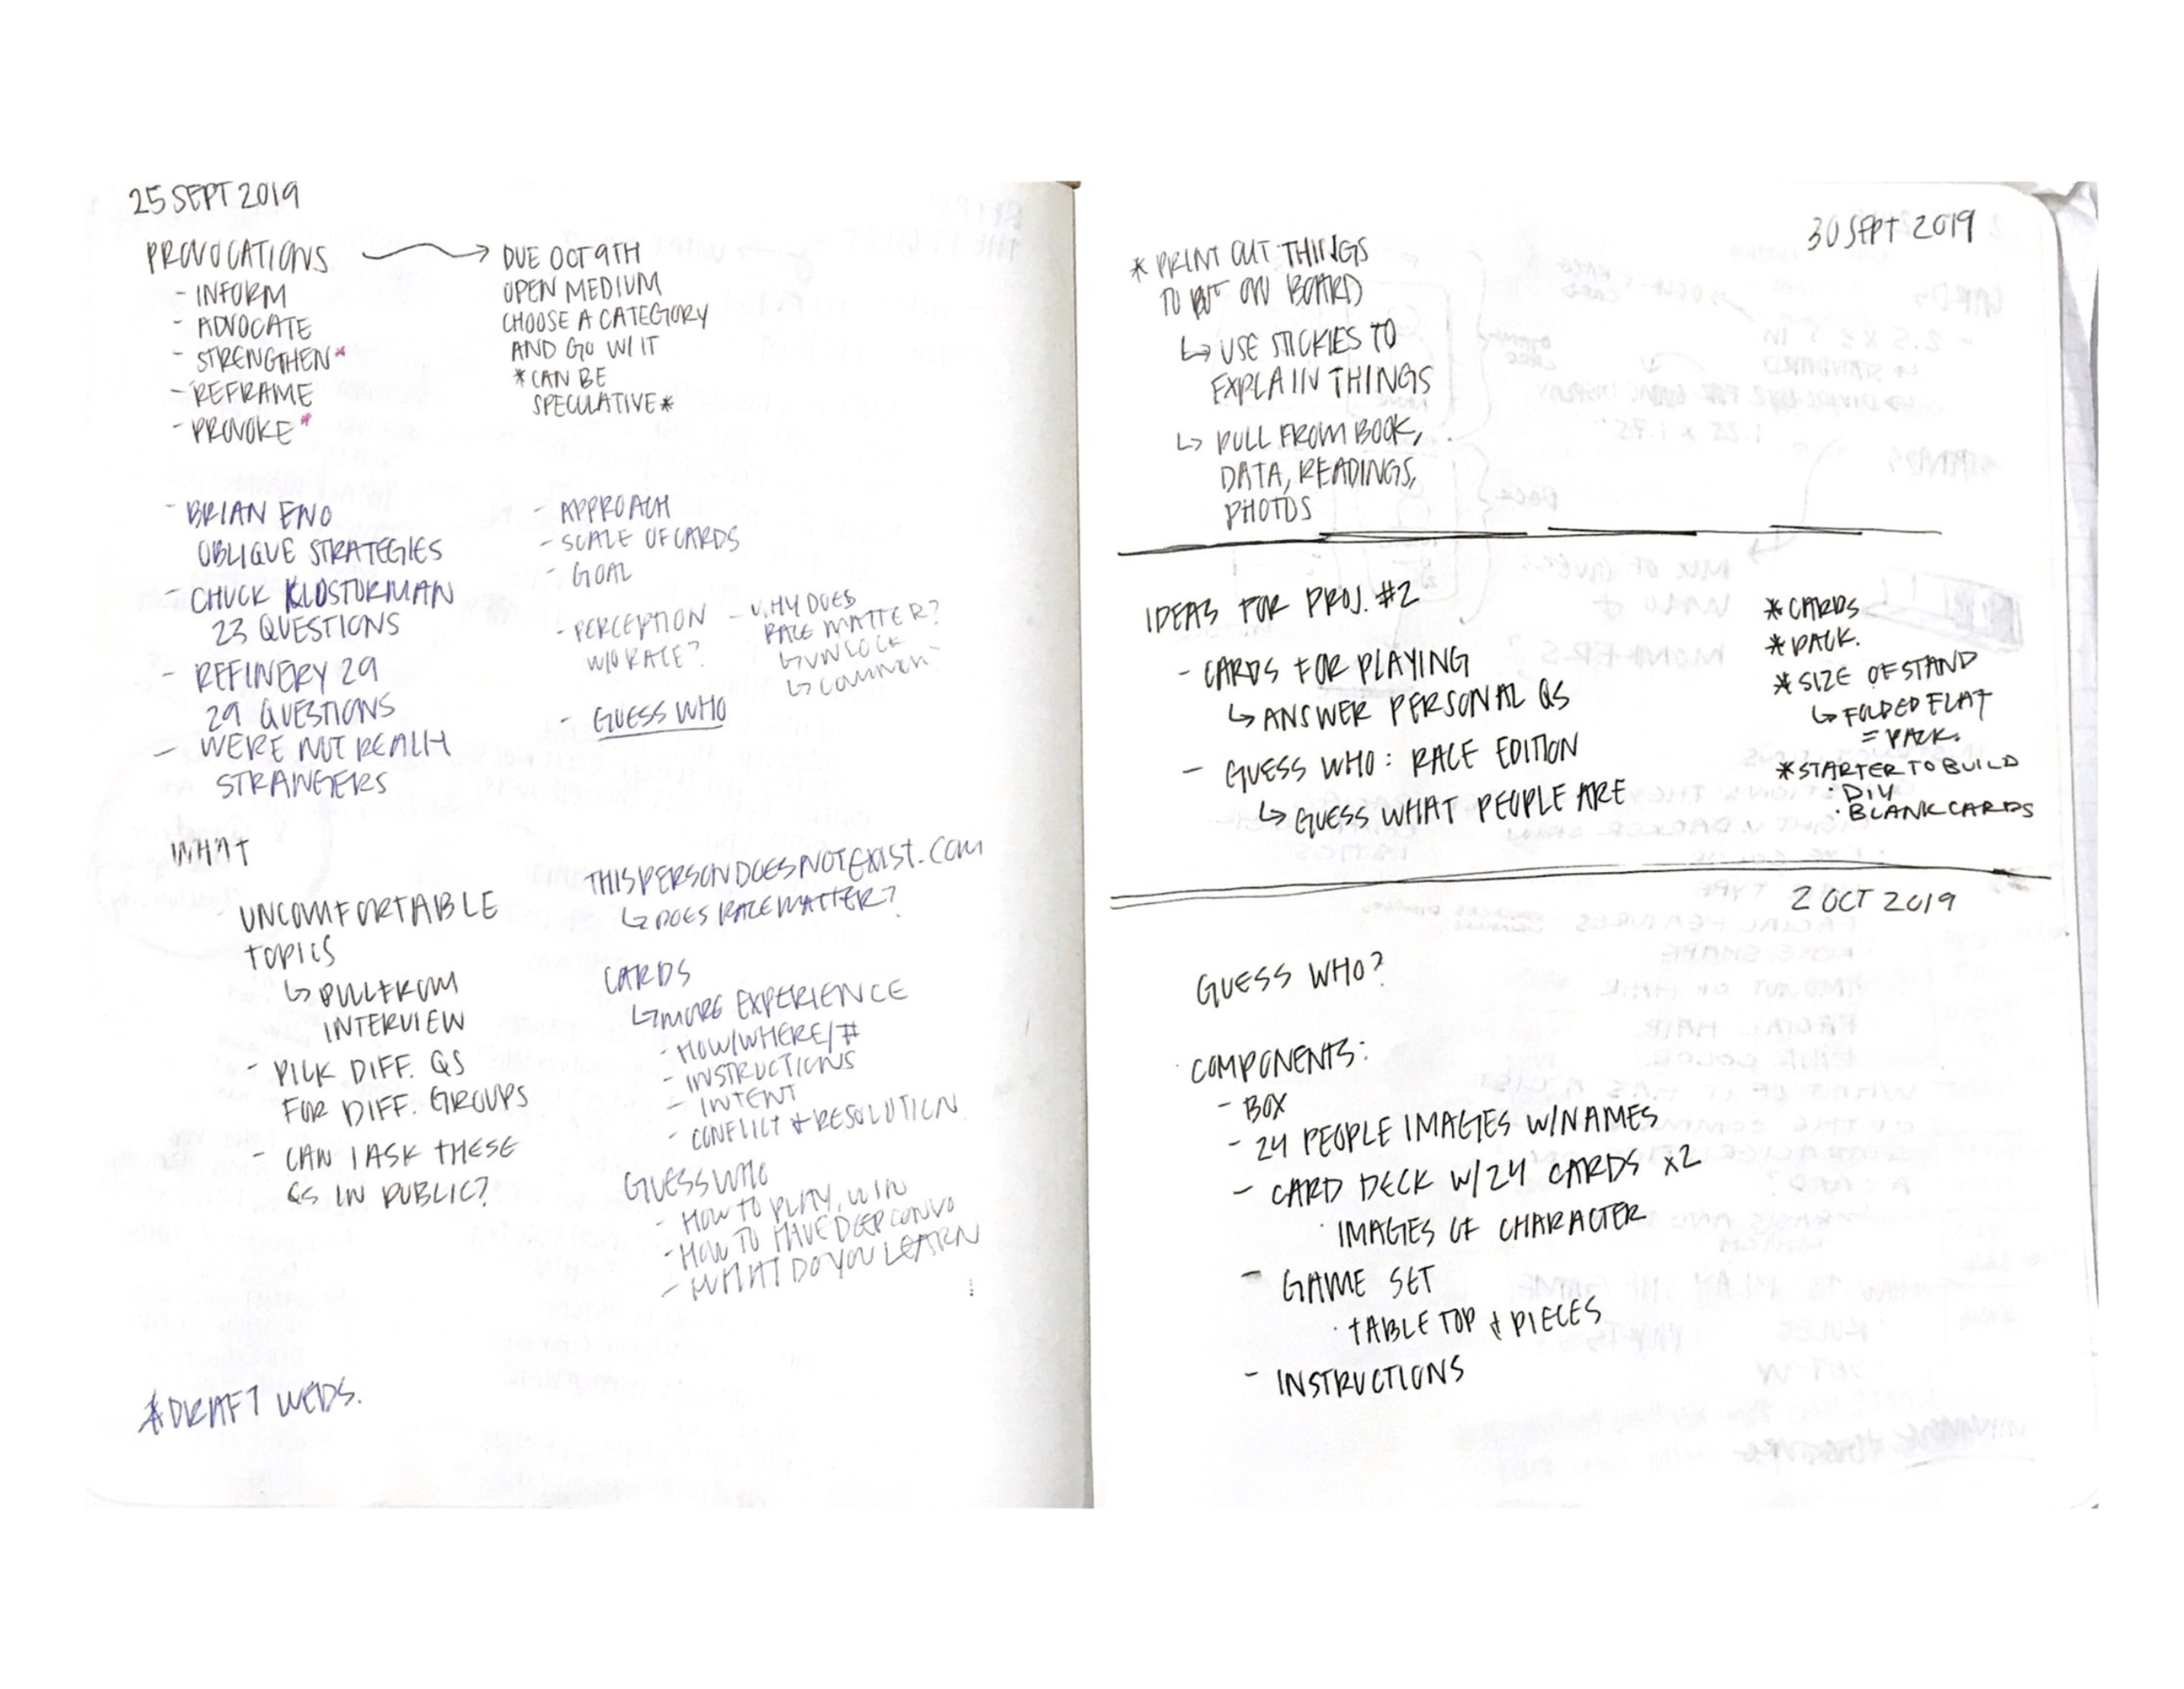 25 SEPT 2019
PROVOCATIONS
- INFORM
- ADVOCATE
- STRENGTHEN*
- REFRAME
- PROVOKE*
DUE OCT 9TH
OPEN MEDIUM
CHOOSE A CATEGORY
AND GO W/ IT
*CAN BE
SPECULATIVE*
- BRIAN ENO
OBLIQUE STRATEGIES
- CHUCK KLOSTURMAN
23 QUESTIONS
- REFINERY 29
29 QUESTIONS
- WERE NOT REALLY
STRANGERS
- APPROACH
- SCALE OF CARDS
- GOAL
- PERCEPTION
W/O RACE?
- WHY DOES
RACE MATTER?
↳ UNLOCK
↳ COMMON
- GUESS WHO
WHAT
- UNCOMFORTABLE
TOPICS
↳ PULL FROM
INTERVIEW
- PICK DIFF. QS
FOR DIFF. GROUPS
- CAN I ASK THESE
QS IN PUBLIC?
THISPERSONDOESNOTEXIST.COM
↳ DOES RACE MATTER?
CARDS
↳ MORE EXPERIENCE
- HOW/WHERE/#
- INSTRUCTIONS
- INTENT
- CONFLICT & RESOLUTION
GUESS WHO
- HOW TO PLAY, WIN
- HOW TO HAVE DEEP CONVO
- WHAT DO YOU LEARN
*DRAFT WEDS.
30 SEPT 2019
* PRINT OUT THINGS
TO PUT ON BOARD
↳ USE STICKIES TO
EXPLAIN THINGS
↳ PULL FROM BOOK,
DATA, READINGS,
PHOTOS
IDEAS FOR PROJ. #2
- CARDS FOR PLAYING
↳ ANSWER PERSONAL QS
- GUESS WHO: RACE EDITION
↳ GUESS WHAT PEOPLE ARE
* CARDS
* PACK.
* SIZE OF STAND
↳ FOLDED FLAT
= PACK.
* STARTER TO BUILD
· DIY
· BLANK CARDS
2 OCT 2019
GUESS WHO?
COMPONENTS:
- BOX
- 24 PEOPLE IMAGES W/NAMES
- CARD DECK W/24 CARDS X2
· IMAGES OF CHARACTER
- GAME SET
· TABLE TOP & PIECES
- INSTRUCTIONS